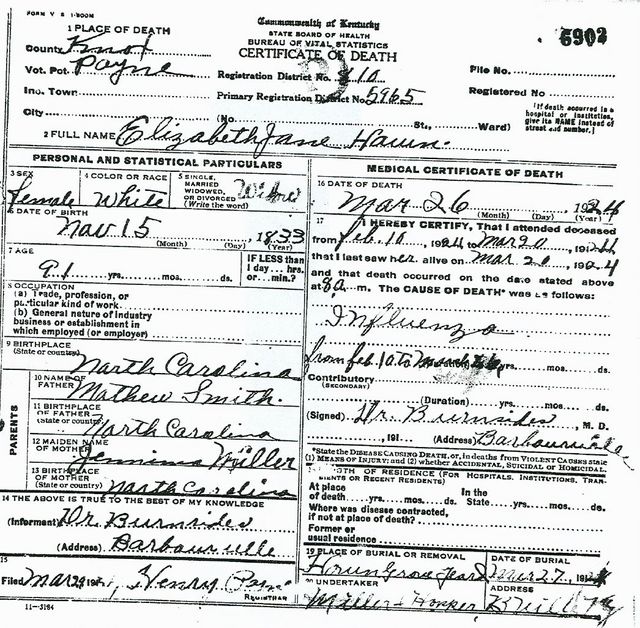 FORM V S 1-500M
Commonwealth of Kentucky
STATE BOARD OF HEALTH
BUREAU OF VITAL STATISTICS
CERTIFICATE OF DEATH
6902
1 PLACE OF DEATH
County Knox
Vot. Pct. Payne
Registration District No. 410
File No.
Inc. Town
Primary Registration District No. 5965
Registered No.
City
(No. St., Ward)
[If death occurred in a hospital or institution, give its NAME instead of street and number.]
2 FULL NAME Elizabeth Jane Hawn
PERSONAL AND STATISTICAL PARTICULARS
3 SEX
female
4 COLOR OR RACE
White
5 SINGLE, MARRIED WIDOWED, OR DIVORCED (Write the word)
Widow
6 DATE OF BIRTH
Nov 15 1833
(Month) (Day) (Year)
7 AGE
91 yrs. mos. ds.
IF LESS than 1 day... hrs. or min.?
8 OCCUPATION
(a) Trade, profession, or particular kind of work
(b) General nature of industry business or establishment in which employed (or employer)
9 BIRTHPLACE
(State or country) North Carolina
10 NAME OF FATHER Mathew Smith
PARENTS
11 BIRTHPLACE OF FATHER
(State or country) North Carolina
12 MAIDEN NAME OF MOTHER Jemima Miller
13 BIRTHPLACE OF MOTHER
(State or country) North Carolina
14 THE ABOVE IS TRUE TO THE BEST OF MY KNOWLEDGE
(Informant) Dr Burnsides
(Address) Barbourville
15
Filed Mar 29 192 , Henry
REGISTRAR
11-3184
MEDICAL CERTIFICATE OF DEATH
16 DATE OF DEATH
Mar 26 1924
(Month) (Day) (Year)
17 I HEREBY CERTIFY, That I attended deceased
from Feb. 10 1924 to Mar 20, 1924
that I last saw her alive on Mar 20, 1924
and that death occurred on the date stated above
at 8 a. m. The CAUSE OF DEATH* was as follows:
Influenza
from Feb 10 to March yrs. mos. ds.
Contributory
(SECONDARY)
(Duration) yrs. mos. ds.
(Signed) Dr. Burnsides M. D.
, 191 (Address) Barbourville
*State the DISEASE CAUSING DEATH, or, in deaths from VIOLENT CAUSES state (1) MEANS OF INJURY; and (2) whether ACCIDENTAL, SUICIDAL or HOMICIDAL
LENGTH OF RESIDENCE (FOR HOSPITALS, INSTITUTIONS, TRANSIENTS OR RECENT RESIDENTS)
At place of death yrs. mos. ds. In the State yrs. mos. ds.
Where was disease contracted, if not at place of death?
Former or usual residence
19 PLACE OF BURIAL OR REMOVAL
DATE OF BURIAL
Mar 27
20 UNDERTAKER
Miller Hopper
ADDRESS